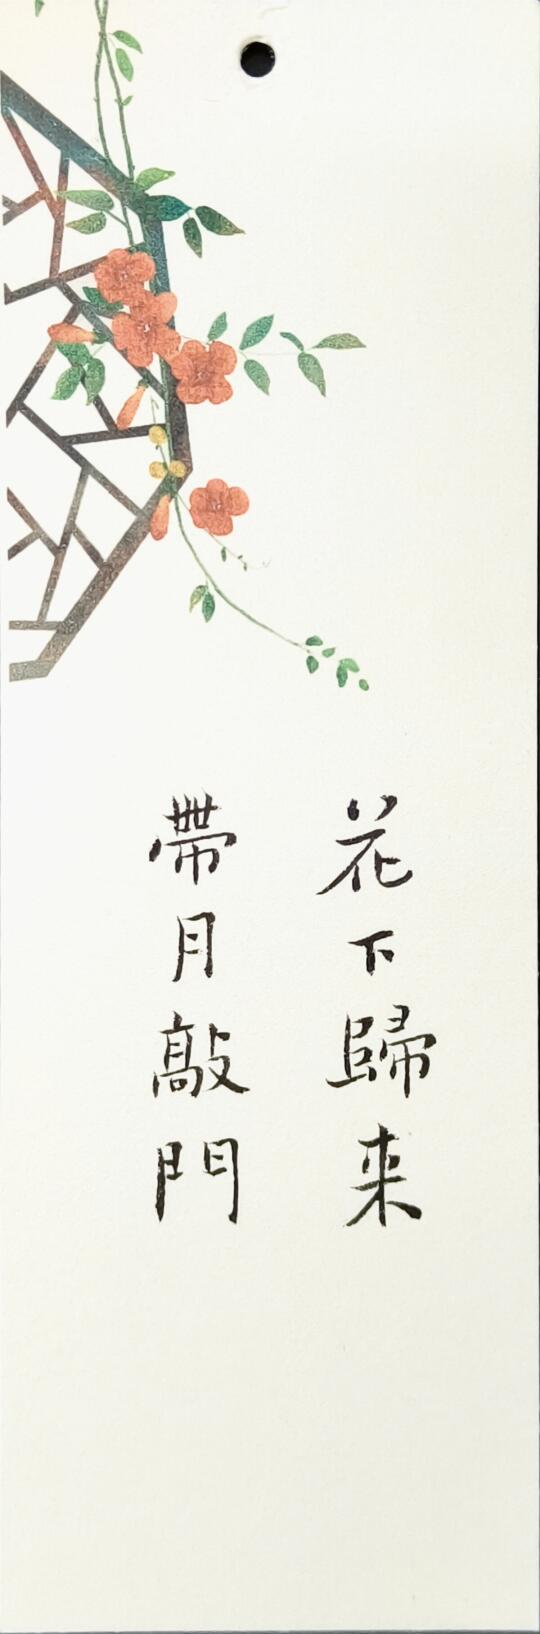 花下歸来
帶月敲門